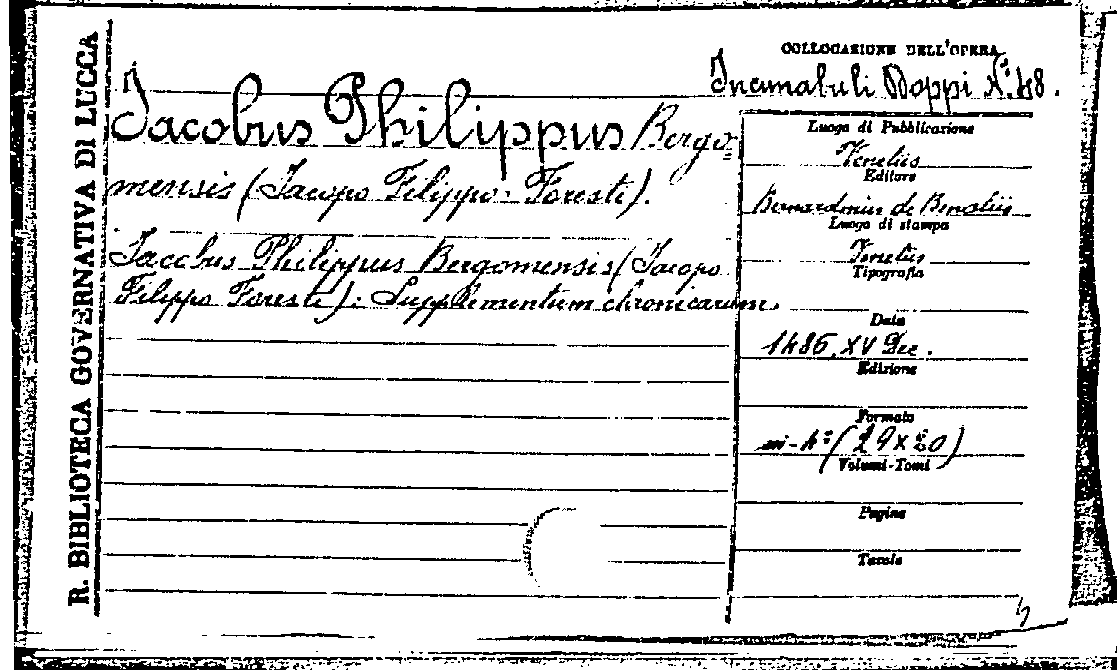 R. BIBLIOTECA GOVERNATIVA DI LUCCA
COLLOCAZIONE DELL'OPERA
Incunabuli Doppi N.º 48.
Jacobus Philippus Bergo=
mensis (Jacopo Filippo Foresti).
Jacobus Philippus Bergomensis (Jacopo
Filippo Foresti): Supplementum chronicarum.
Luogo di Pubblicazione
Venetiis
Editore
Bernardinus de Benaliis
Luogo di stampa
Venetiis
Tipografia
Data
1486, XV Dec.
Edizione
Formato
in-4º (29 x 20)
Volumi-Tomi
Pagine
Tavole